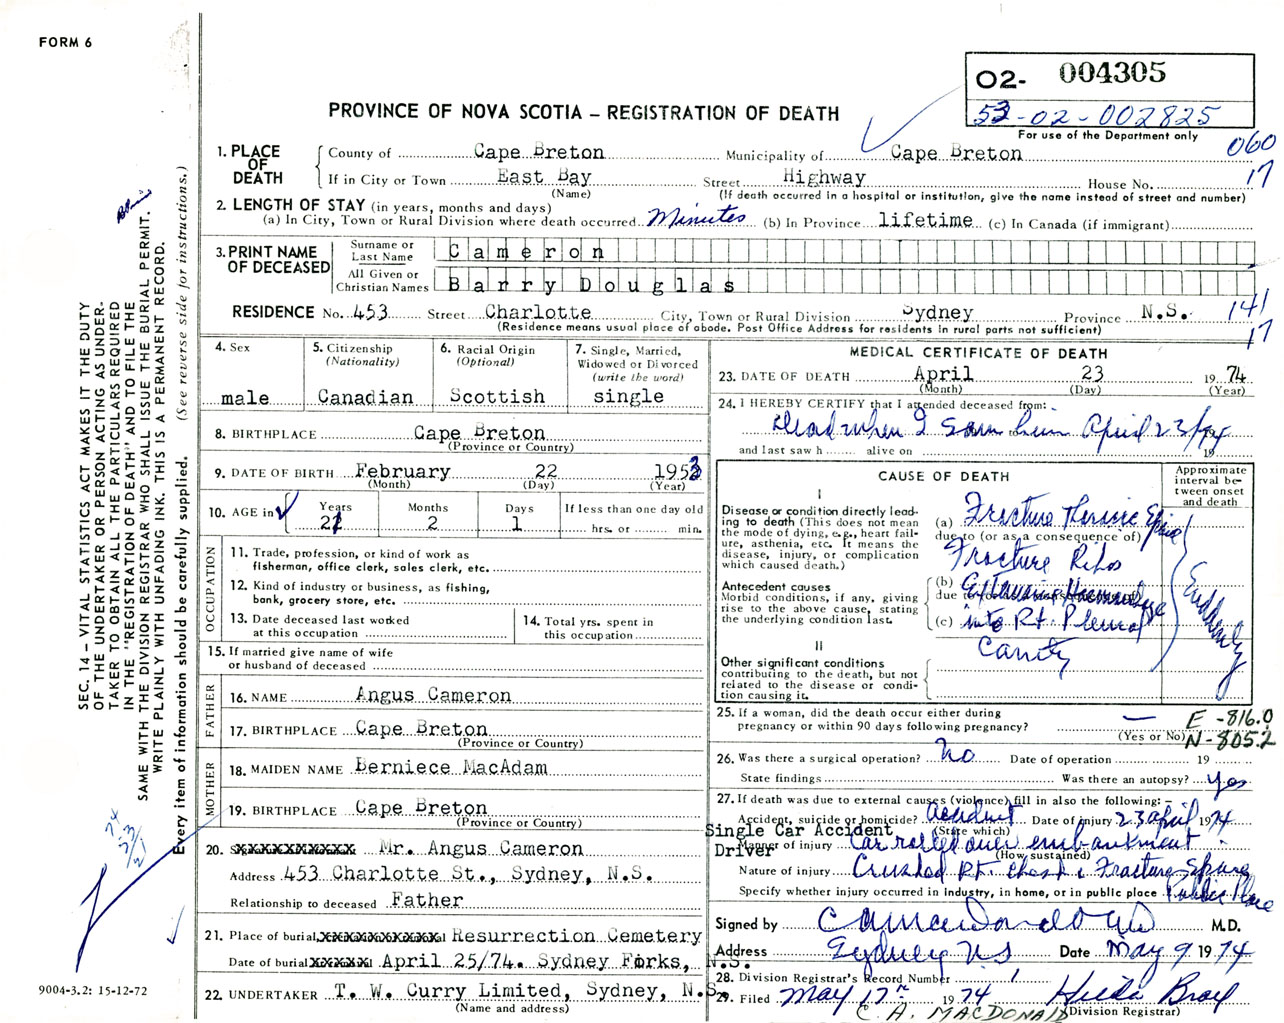 FORM 6
02- 004305
53-02-002825
For use of the Department only
PROVINCE OF NOVA SCOTIA – REGISTRATION OF DEATH
060
17
1. PLACE OF DEATH
County of Cape Breton Municipality of Cape Breton
If in City or Town East Bay Street Highway House No.
(Name) (If death occurred in a hospital or institution, give the name instead of street and number)
2. LENGTH OF STAY (in years, months and days)
(a) In City, Town or Rural Division where death occurred Minutes (b) In Province lifetime (c) In Canada (if immigrant)
3. PRINT NAME OF DECEASED
Surname or Last Name Cameron
All Given or Christian Names Barry Douglas
RESIDENCE No. 453 Street Charlotte City, Town or Rural Division Sydney Province N.S.
(Residence means usual place of abode. Post Office Address for residents in rural parts not sufficient)
141
17
4. Sex
male
5. Citizenship
(Nationality)
Canadian
6. Racial Origin
(Optional)
Scottish
7. Single, Married, Widowed or Divorced
(write the word)
single
8. BIRTHPLACE Cape Breton
(Province or Country)
9. DATE OF BIRTH February 22 1953
(Month) (Day) (Year)
10. AGE in
Years Months Days If less than one day old
21 2 1 hrs. or min.
OCCUPATION
11. Trade, profession, or kind of work as fisherman, office clerk, sales clerk, etc.
12. Kind of industry or business, as fishing, bank, grocery store, etc.
13. Date deceased last worked at this occupation
14. Total yrs. spent in this occupation
15. If married give name of wife or husband of deceased
FATHER
16. NAME Angus Cameron
17. BIRTHPLACE Cape Breton
(Province or Country)
MOTHER
18. MAIDEN NAME Berniece MacAdam
19. BIRTHPLACE Cape Breton
(Province or Country)
20. Mr. Angus Cameron
Address 453 Charlotte St., Sydney, N.S.
Relationship to deceased Father
21. Place of burial Resurrection Cemetery
Date of burial April 25/74. Sydney Forks, N.S.
22. UNDERTAKER T. W. Curry Limited, Sydney, N.S.
(Name and address)
MEDICAL CERTIFICATE OF DEATH
23. DATE OF DEATH April 23 1974
(Month) (Day) (Year)
24. I HEREBY CERTIFY that I attended deceased from:
Dead when I saw him April 23/74
19
and last saw h alive on 19
CAUSE OF DEATH
Approximate interval between onset and death
I
Disease or condition directly leading to death (This does not mean the mode of dying, e.g., heart failure, asthenia, etc. It means the disease, injury, or complication which caused death.)
(a) Fracture Thoracic Spine
due to (or as a consequence of)
Fracture Ribs
Antecedent causes
Morbid conditions, if any, giving rise to the above cause, stating the underlying condition last.
(b) Extensive Haemorrhage
(c) into Rt. Pleural
Cavity
Suddenly
II
Other significant conditions contributing to the death, but not related to the disease or condition causing it.
25. If a woman, did the death occur either during pregnancy or within 90 days following pregnancy? —
(Yes or No)
E -816.0
N-805.2
26. Was there a surgical operation? No Date of operation 19
State findings Was there an autopsy? yes
27. If death was due to external causes (violence) fill in also the following:-
Accident, suicide or homicide? accident Date of injury 23 april 1974
(State which)
Single Car Accident
Driver
Manner of injury Car rolled over embankment
(How sustained)
Nature of injury Crushed Rt. Chest & Fracture Spine
Specify whether injury occurred in industry, in home, or in public place Public Place
Signed by M.D.
Address Sydney NS Date May 9 1974
28. Division Registrar's Record Number
29. Filed May 17th 1974 Hilda Bray
C. A. MACDONALD (Division Registrar)
SEC. 14 – VITAL STATISTICS ACT MAKES IT THE DUTY
OF THE UNDERTAKER OR PERSON ACTING AS UNDER-
TAKER TO OBTAIN ALL THE PARTICULARS REQUIRED
IN THE "REGISTRATION OF DEATH" AND TO FILE THE
SAME WITH THE DIVISION REGISTRAR WHO SHALL ISSUE THE BURIAL PERMIT.
WRITE PLAINLY WITH UNFADING INK. THIS IS A PERMANENT RECORD.
Every item of information should be carefully supplied. (See reverse side for instructions.)
9004-3.2: 15-12-72